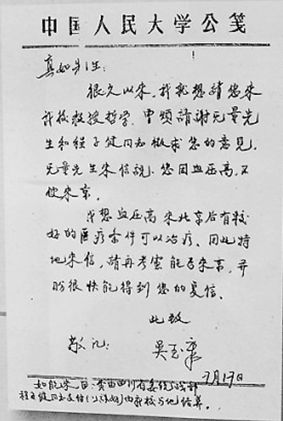 中国人民大学公笺
真如先生：
很久以来，我就想请您来
我校教授哲学，曾烦请谢无量先
生和程子健同志徵求您的意见，
无量先生来信说：您因血压高，不
便来京。
我想血压高来北京后有较
好的医疗条件可以治疗、因此特
地来信，请再考虑能否来京，并
盼很快能得到您的复信。
此致
敬礼！
吴玉章
7月17日
如能来，
程子健同志